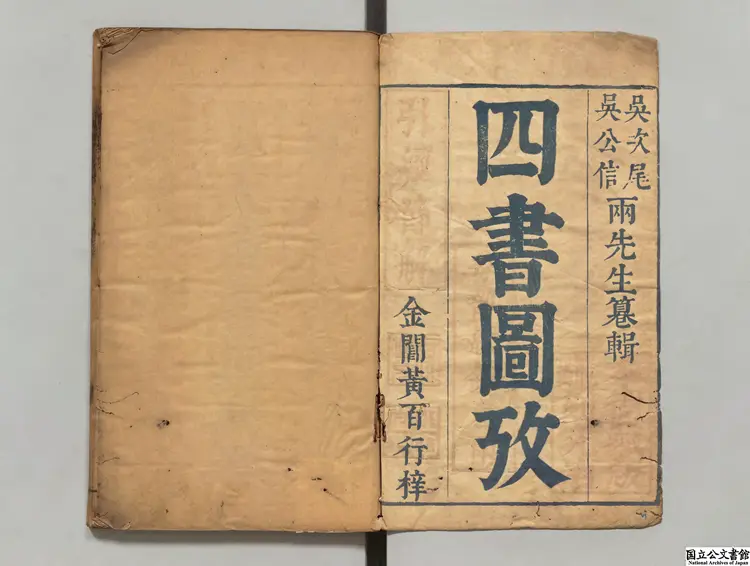 吳次尾
吳公信
兩先生纂輯
四書圖攷
金閶黃百行梓
国立公文書館
National Archives of Japan